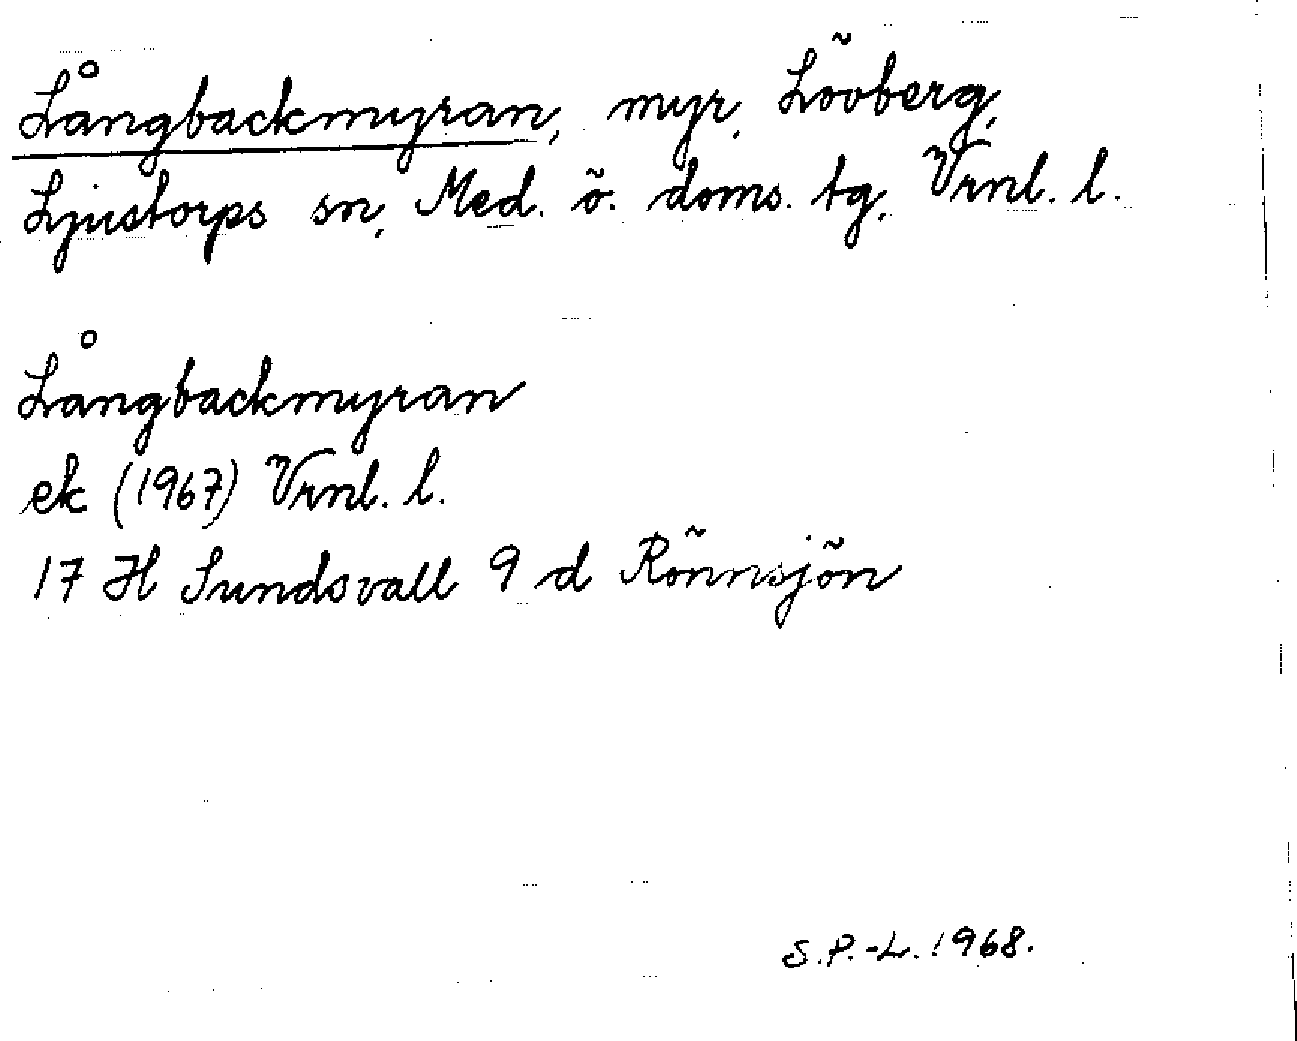 Långbackmyran, myr, Lövberg,
Ljustorps sn, Med. ö. doms. tg, Vrnl. l.
Långbackmyran
ek (1967) Vrnl. l.
17 H Sundsvall 9 d Rönnsjön
S.P.-L. 1968.